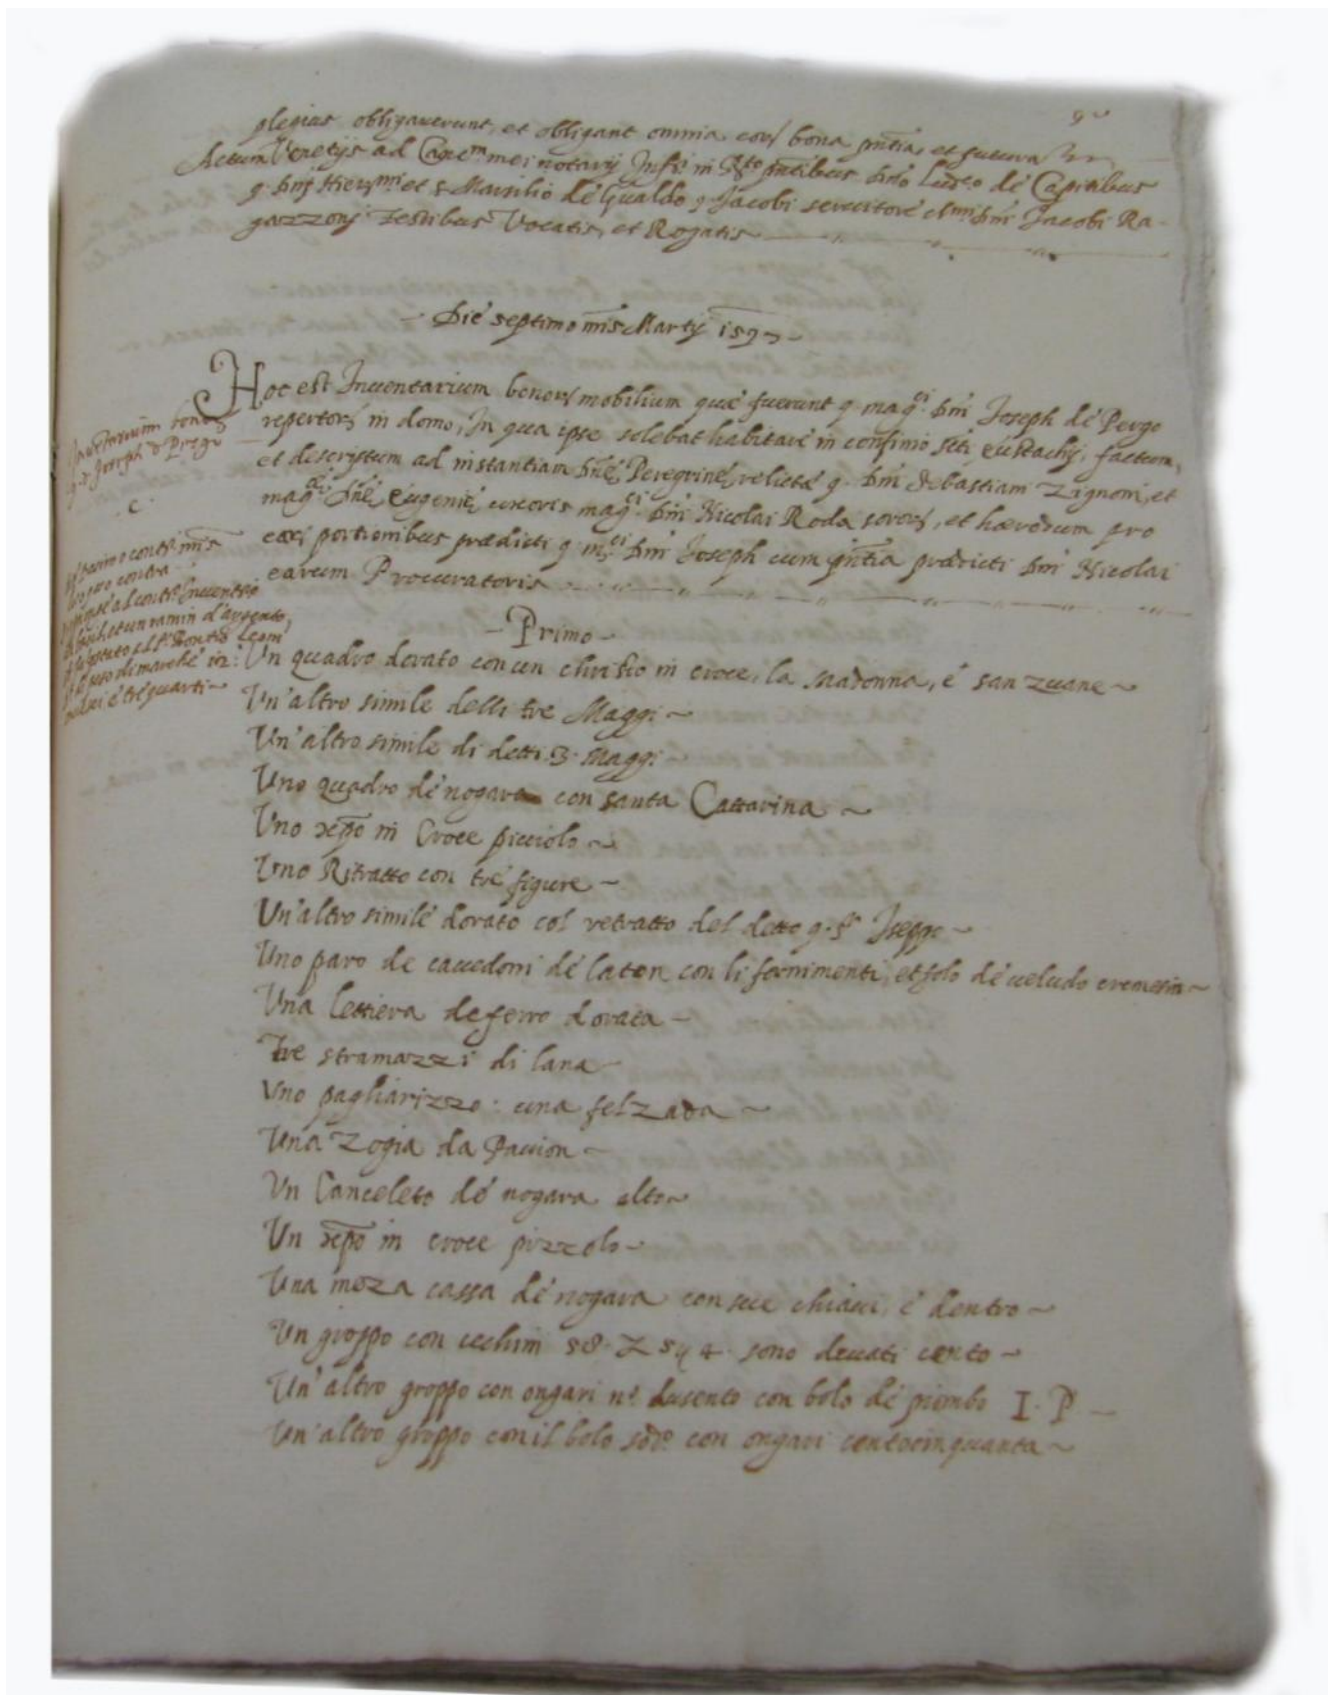 plegius obligaverunt, et obligant omnia eorum bona pñtia, et futura
Actum Venetijs ad Canc.m mei notarij Infri in Rto pñtibus dño Lud.co de Capitibus
q. dñi Hierm.mi et s. Marsilio de Gualdo q. Jacobi servitore cl.mi dñi Jacobi Ra-
gazzonj Testibus Vocatis, et Rogatis
Die septimo m̃is Martij 1597
Hoc est Inventarium bonorum mobilium quae fuerunt q. mag.ci dñi Joseph de Pergo
repertorum in domo, In qua ipse solebat habitare in confinio scti Eustachij, factum,
et descriptum ad instantiam dñe Peregrine relicte q. dñi Sebastiani Zignoni, et
mag.ce dñe Eugenie uxoris mag.ci dñi Nicolai Roda sororum, et haeredum pro
earum portionibus praedicti q. m.ci dñi Joseph cum pñtia praedicti dñi Nicolai
earum Procuratoris
Inventarium bonorum
q. d. Joseph de Pergo
c.
- Primo -
Un quadro dorato con un christo in croce, la Madonna, é san zuane
Un'altro simile delli tre Maggi
Un'altro simile di detti .3. Maggi
Uno quadro dé nogara con santa Cattarina
Uno xp̃o in Croce picciolo
Uno Ritratto con tré figure
Un'altro similé dorato col retratto del detto q. s.r Iseppo
Uno paro de cavedoni dé laton con li fornimenti, et solo dé veludo cremesin
Una lettiera de ferro dorata
Tre stramazzi di lana
Uno pagliarizzo: una felzada
Una Zogia da
Un Canceleto dé nogara alto
Un xp̃o in croce pizzolo
Una meza cassa dé nogara con sue chiavi, é dentro
Un groppo con cechini 58. sono ducati cento
Un'altro groppo con ongari n.o dusento con bolo dé piombo I. P.
Un'altro groppo con il bolo sod.o con ongari centocinquanta